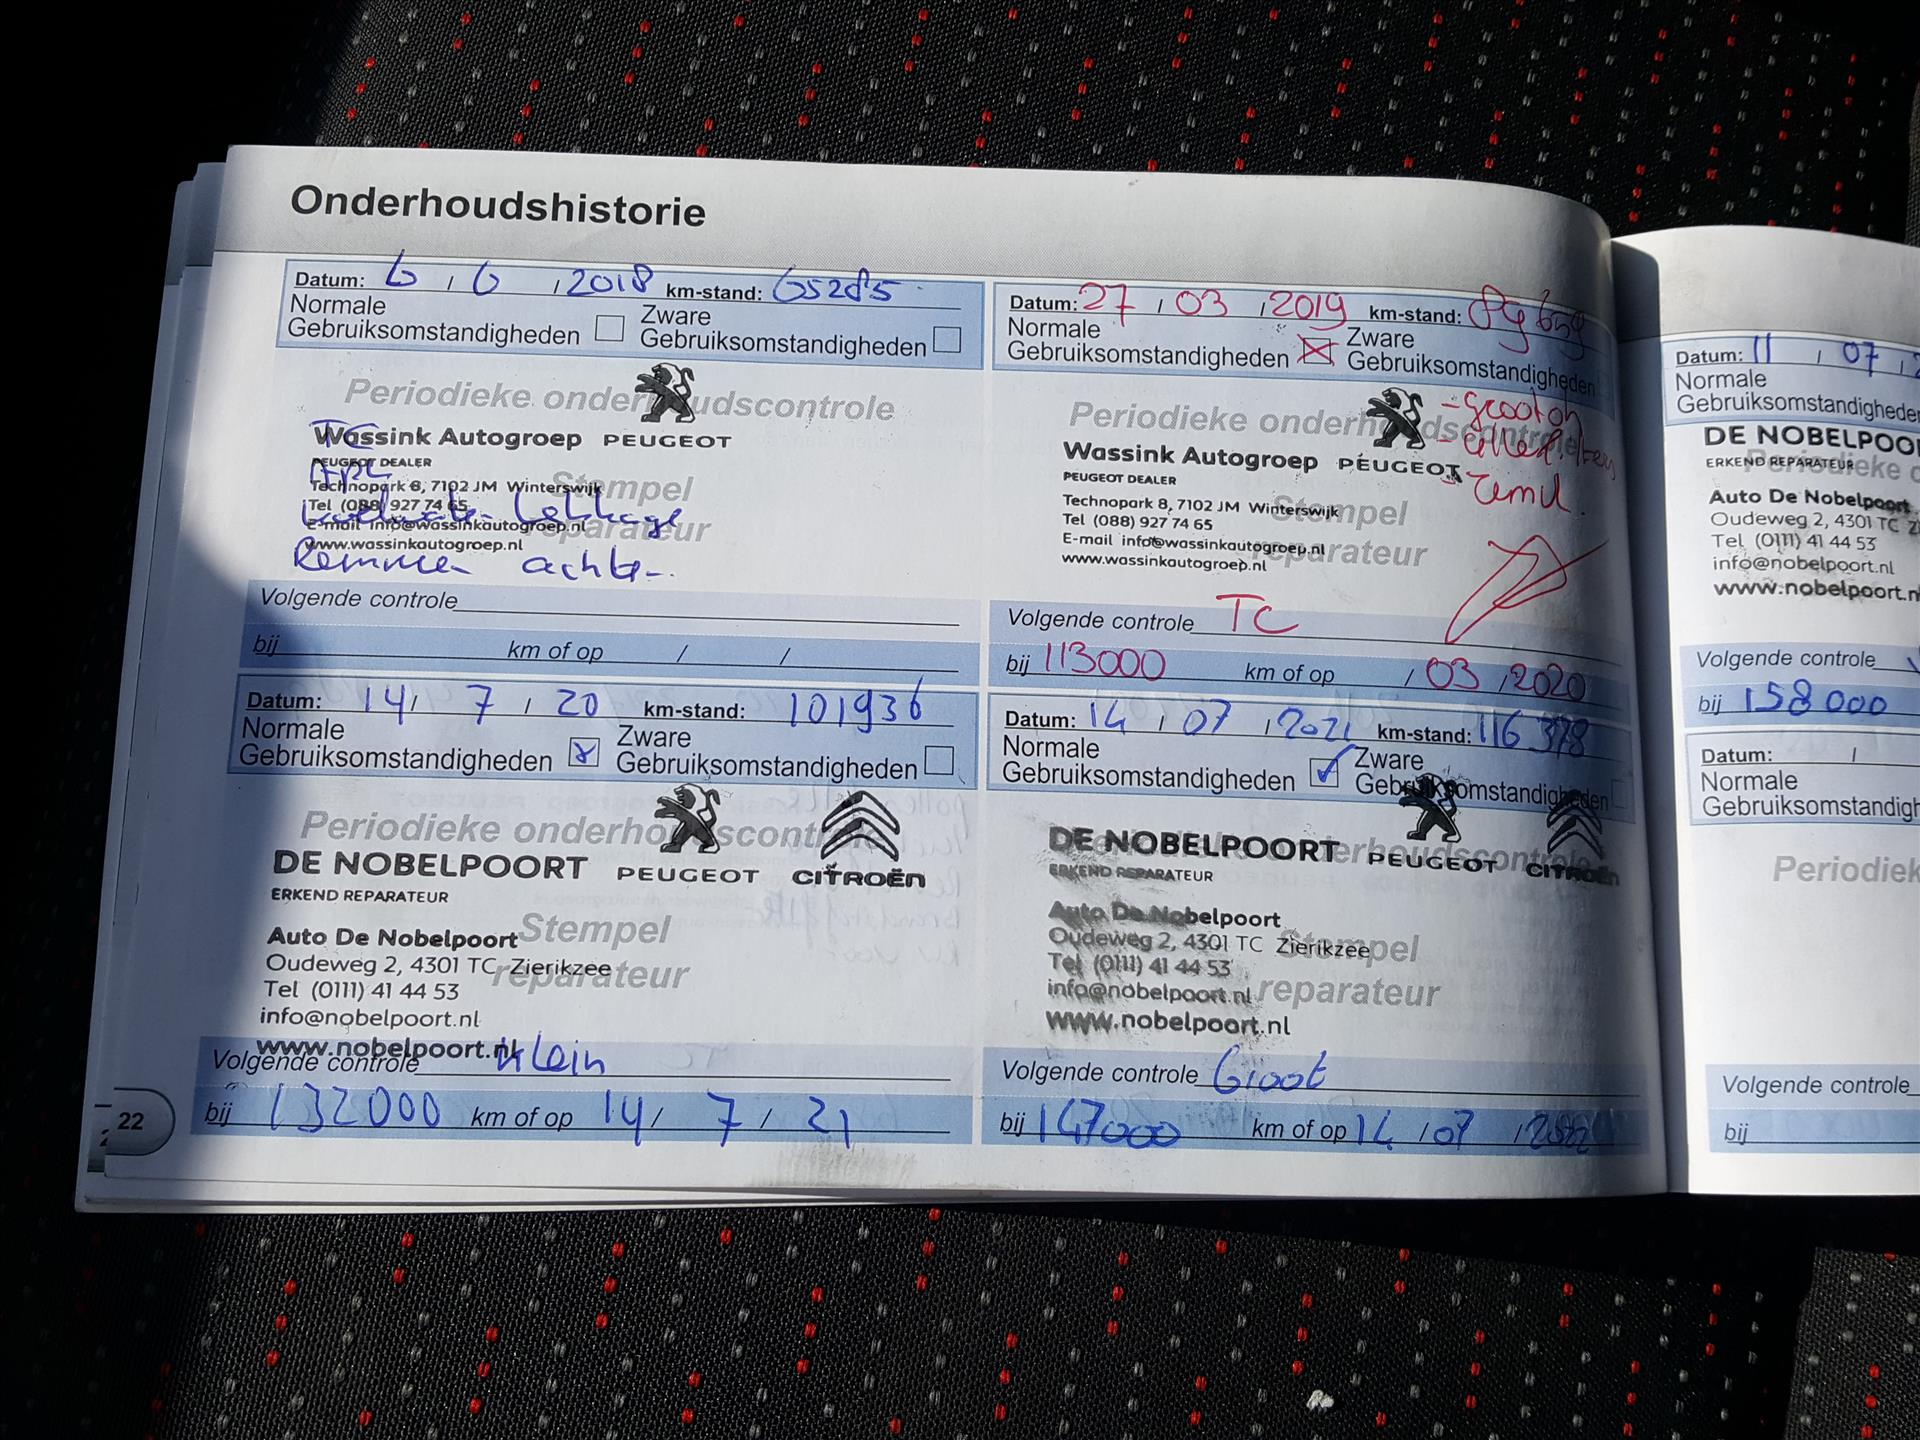 Onderhoudshistorie
Datum: 6 / 6 / 2018 km-stand: 65285
Normale Gebruiksomstandigheden
Zware Gebruiksomstandigheden
Periodieke onderhoudscontrole
TC
Wassink Autogroep PEUGEOT
PEUGEOT DEALER
Technopark 8, 7102 JM Winterswijk
Tel (088) 927 74 65
E-mail info@wassinkautogroep.nl
www.wassinkautogroep.nl
Stempel
reparateur
lekkage
Remmen achter
Volgende controle
bij km of op / /
Datum: 27 / 03 / 2019 km-stand:
Normale Gebruiksomstandigheden
Zware Gebruiksomstandigheden
Periodieke onderhoudscontrole
- groot oh
Wassink Autogroep PEUGEOT
PEUGEOT DEALER
Technopark 8, 7102 JM Winterswijk
Tel (088) 927 74 65
E-mail info@wassinkautogroep.nl
www.wassinkautogroep.nl
Stempel
reparateur
Volgende controle TC
bij 113000 km of op / 03 / 2020
Datum: 14 / 7 / 20 km-stand: 101936
Normale Gebruiksomstandigheden
Zware Gebruiksomstandigheden
Periodieke onderhoudscontrole
DE NOBELPOORT PEUGEOT CITROËN
ERKEND REPARATEUR
Auto De Nobelpoort
Oudeweg 2, 4301 TC Zierikzee
Tel (0111) 41 44 53
info@nobelpoort.nl
www.nobelpoort.nl
Stempel
reparateur
Volgende controle Klein
bij 132000 km of op 14 / 7 / 21
Datum: 14 / 07 / 2021 km-stand: 116378
Normale Gebruiksomstandigheden
Zware Gebruiksomstandigheden
Periodieke onderhoudscontrole
DE NOBELPOORT PEUGEOT CITROËN
ERKEND REPARATEUR
Auto De Nobelpoort
Oudeweg 2, 4301 TC Zierikzee
Tel (0111) 41 44 53
info@nobelpoort.nl
www.nobelpoort.nl
Stempel
reparateur
Volgende controle Groot
bij 147000 km of op 14 / 07 / 2022
22
Datum: 11 / 07 /
Normale
Gebruiksomstandighede
DE NOBELPOO
ERKEND REPARATEUR
Periodieke
Auto De Nobelpoort
Oudeweg 2, 4301 TC
Tel (0111) 41 44 53
info@nobelpoort.nl
www.nobelpoort.n
Volgende controle
bij 158000
Datum: /
Normale
Gebruiksomstandigh
Periodiek
Volgende controle
bij